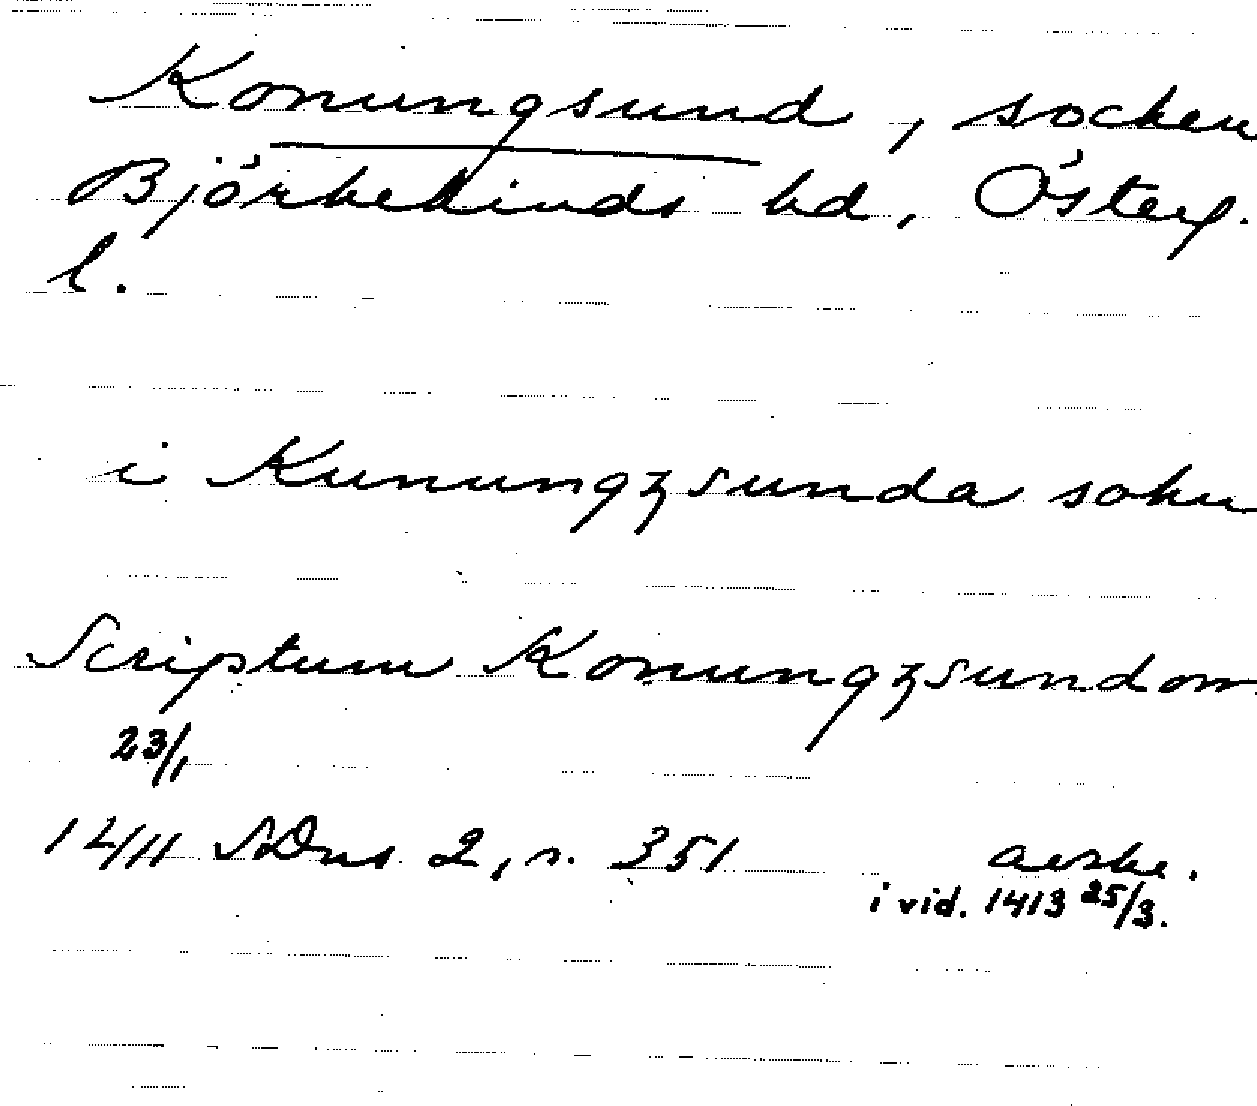 Konungsund, socken
Björkekinds hd, Österg.
l.
i Kunungzsunda sokn
Scriptum Konungzsundom
23/1
1411 SDns 2, s. 351 avskr.
i vid. 1413 25/3.